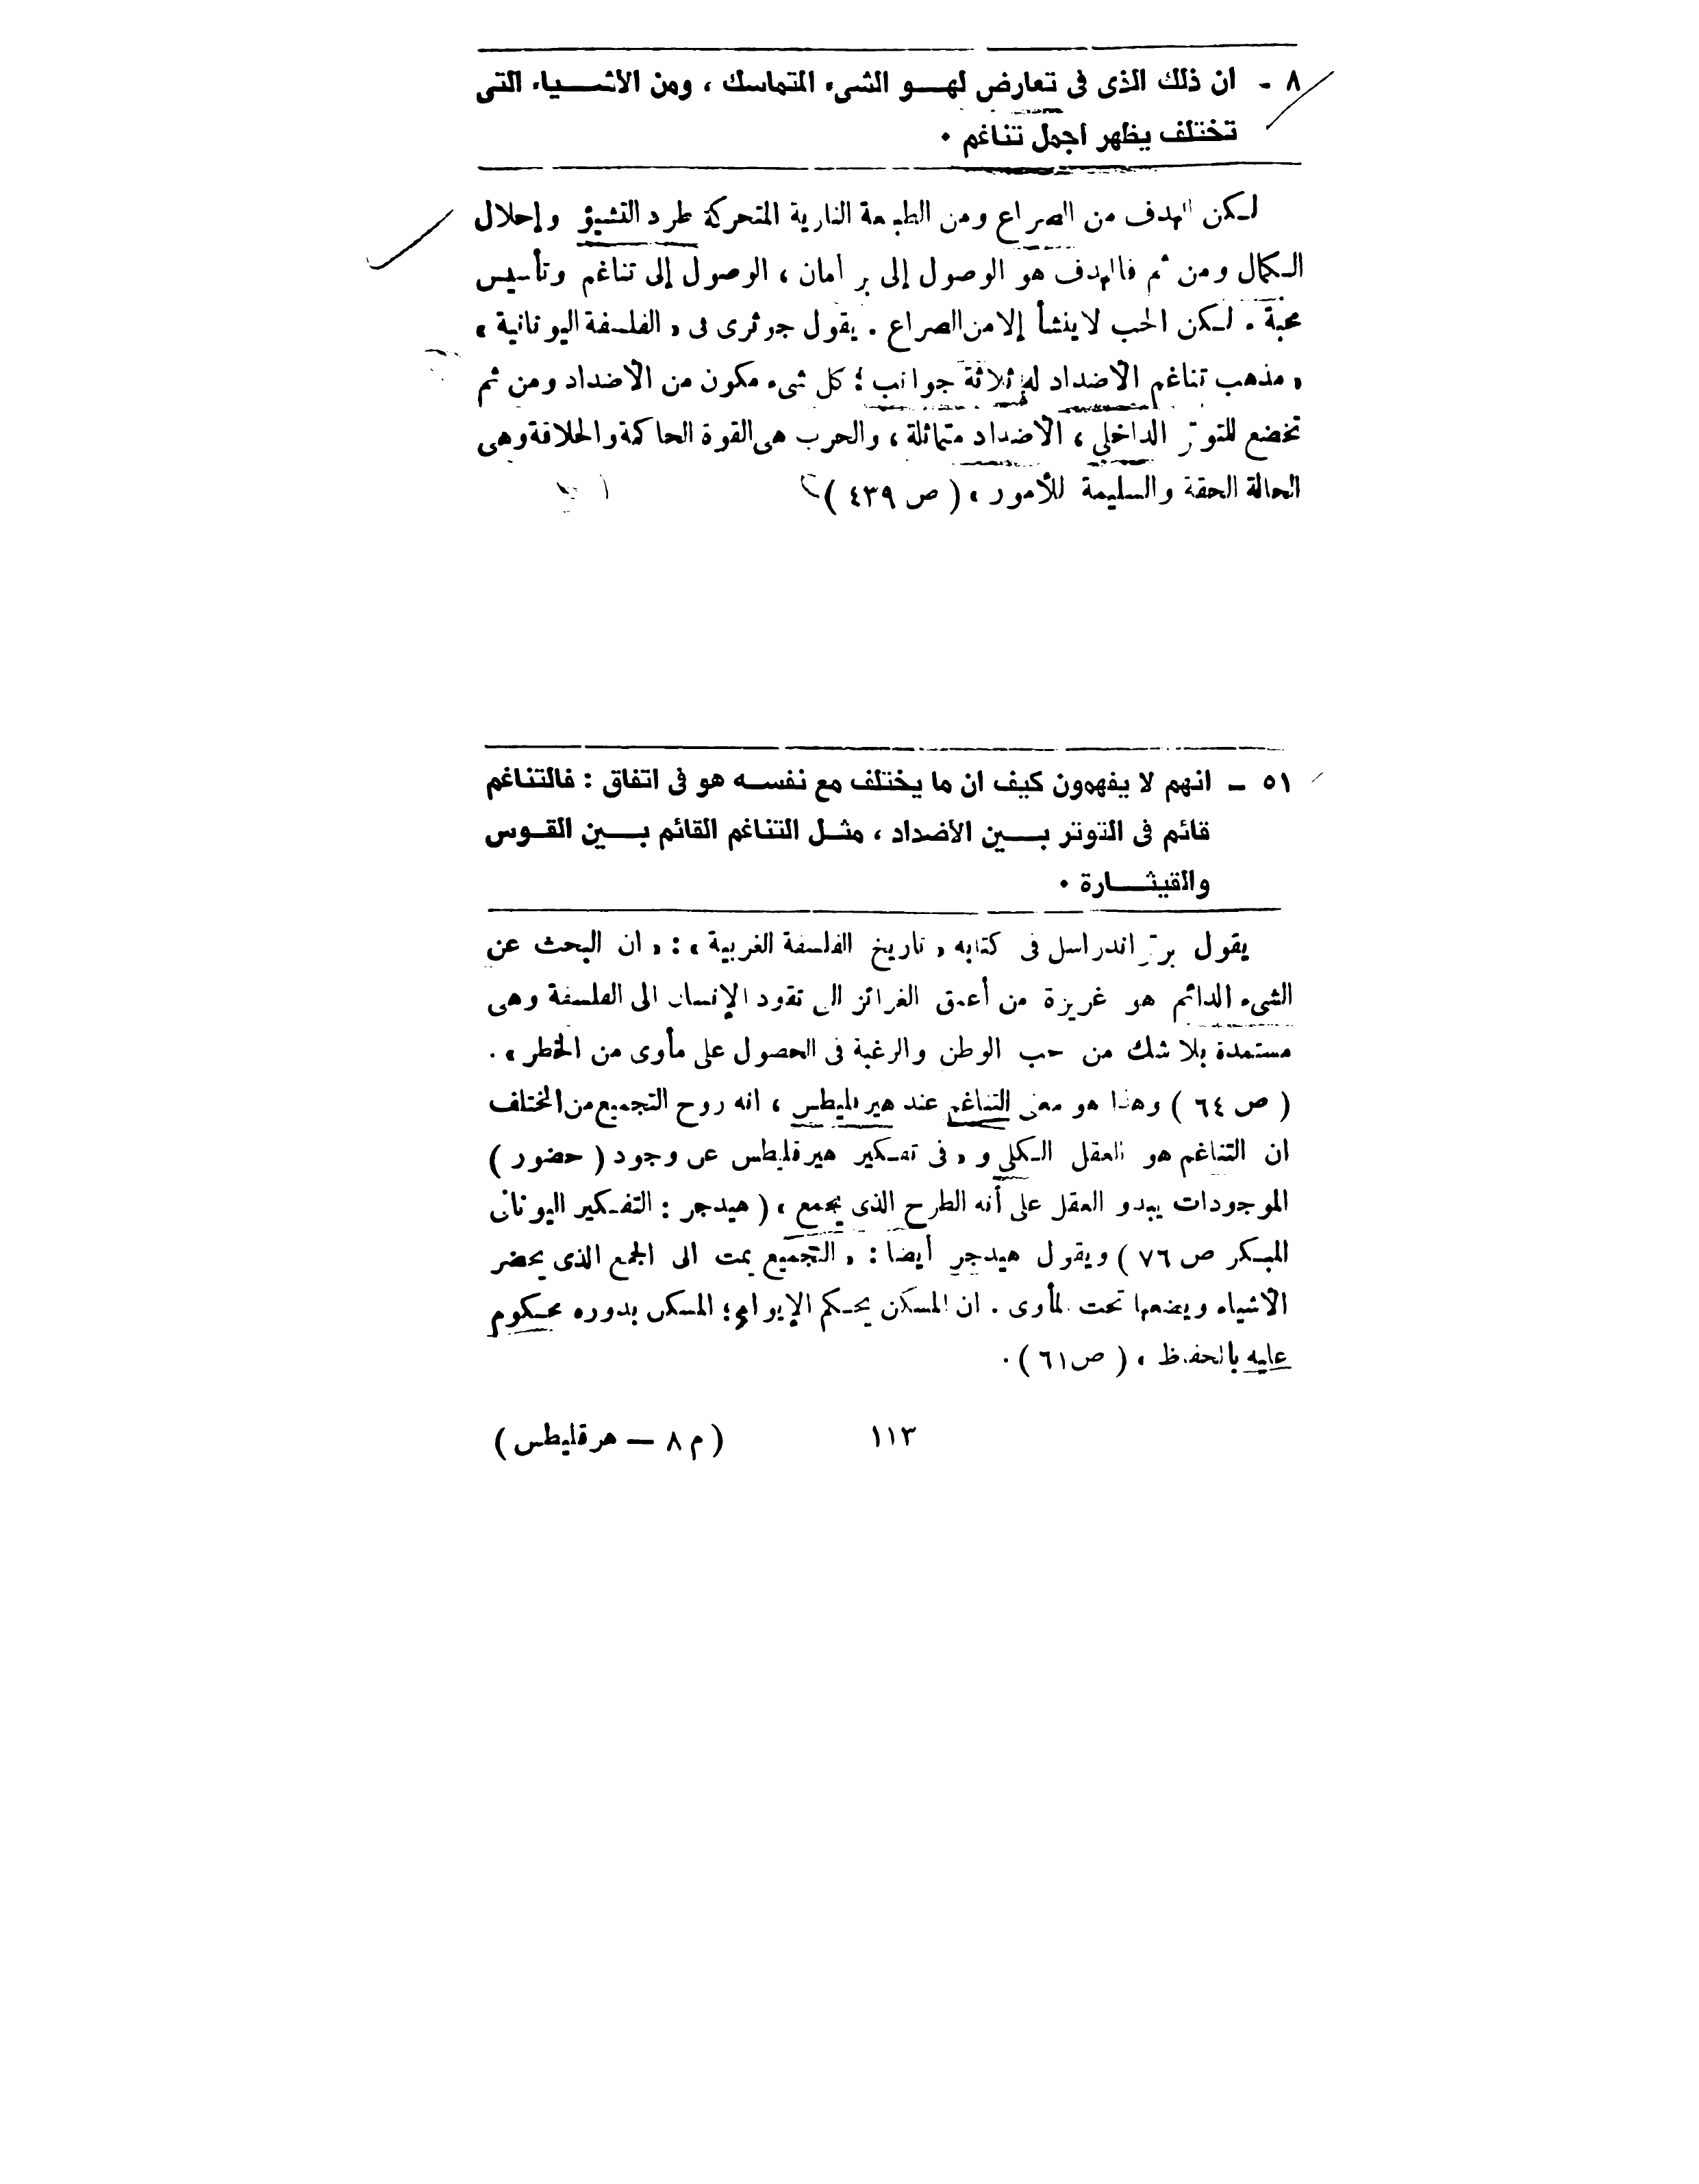 ٨ - ان ذلك الذى فى تعارض لهو الشىء المتماسك ، ومن الأشياء التى
تختلف يظهر اجمل تناغم .
لكن الهدف من الصراع ومن الطبيعة النارية المتحركة طرد التشيؤ وإحلال
الكمال ومن ثم فالهدف هو الوصول إلى بر أمان ، الوصول إلى تناغم وتأسيس
محبة . لكن الحب لا ينشأ إلا من الصراع . يقول جوثرى فى « الفلسفة اليونانية »
« مذهب تناغم الأضداد له ثلاثة جوانب ؛ كل شىء مكون من الأضداد ومن ثم
تخضع للتوتر الداخلى ، الأضداد متماثلة ، والحرب هى القوة الحاكمة والخلاقة وهى
الحالة الحقة والسليمة للأمور » ( ص ٤٣٩ )
٥١ - انهم لا يفهمون كيف ان ما يختلف مع نفسه هو فى اتفاق : فالتناغم
قائم فى التوتر بين الأضداد ، مثل التناغم القائم بين القوس
والقيثارة .
يقول برتراندراسل فى كتابه « تاريخ الفلسفة الغربية » : « ان البحث عن
الشىء الدائم هو غريزة من أعمق الغرائز التى تقود الإنسان الى الفلسفة وهى
مستمدة بلا شك من حب الوطن والرغبة فى الحصول على مأوى من الخطر » .
( ص ٦٤ ) وهذا هو معنى التناغم عند هيرقليطس ، انه روح التجميع من المختلف
ان التناغم هو العقل الكلى و « فى تفكير هيرقليطس عن وجود ( حضور )
الموجودات يبدو العقل على أنه الطرح الذى يجمع » ( هيدجر : التفكير اليونانى
المبكر ص ٧٦ ) ويقول هيدجر أيضا : « التجميع يمت الى الجمع الذى يحضر
الأشياء ويضعها تحت المأوى . ان المسكن يحكم الإيواء ؛ المسكن بدوره محكوم
عليه بالحفاظ » ( ص ٦١ ) .
١١٣
( م ٨ — هرقليطس )